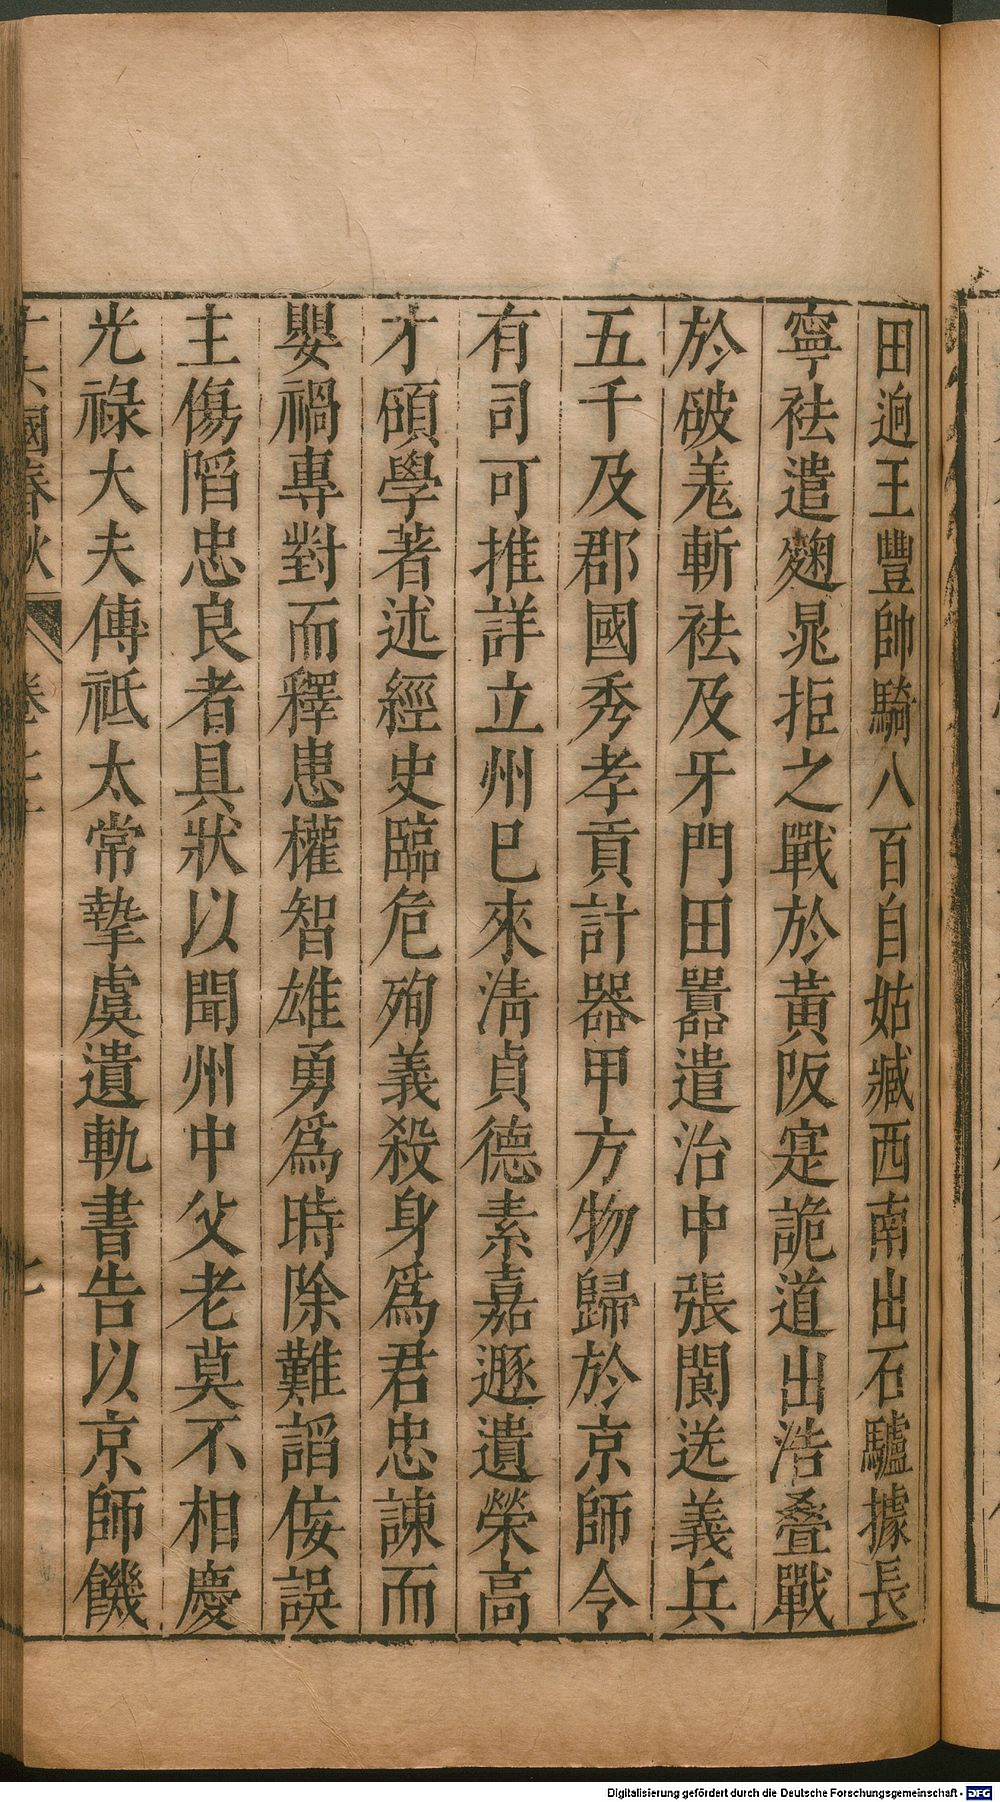 田逈王豐帥騎八百自姑臧西南出石驢據長
寧袪遣麴晁拒之戰於黃阪寔詭道出浩亹戰
於破羌斬袪及牙門田嚻遣治中張閬送義兵
五千及郡國秀孝貢計器甲方物歸於京師令
有司可推詳立州巳來淸貞德素嘉遯遺榮高
才碩學著述經史臨危殉義殺身爲君忠諫而
嬰禍專對而釋患權智雄勇爲時除難諂佞誤
主傷陷忠良者具狀以聞州中父老莫不相慶
光祿大夫傅祗太常摯虞遺軌書告以京師饑
十六國春秋
卷七十
七
Digitalisierung gefördert durch die Deutsche Forschungsgemeinschaft - DFG